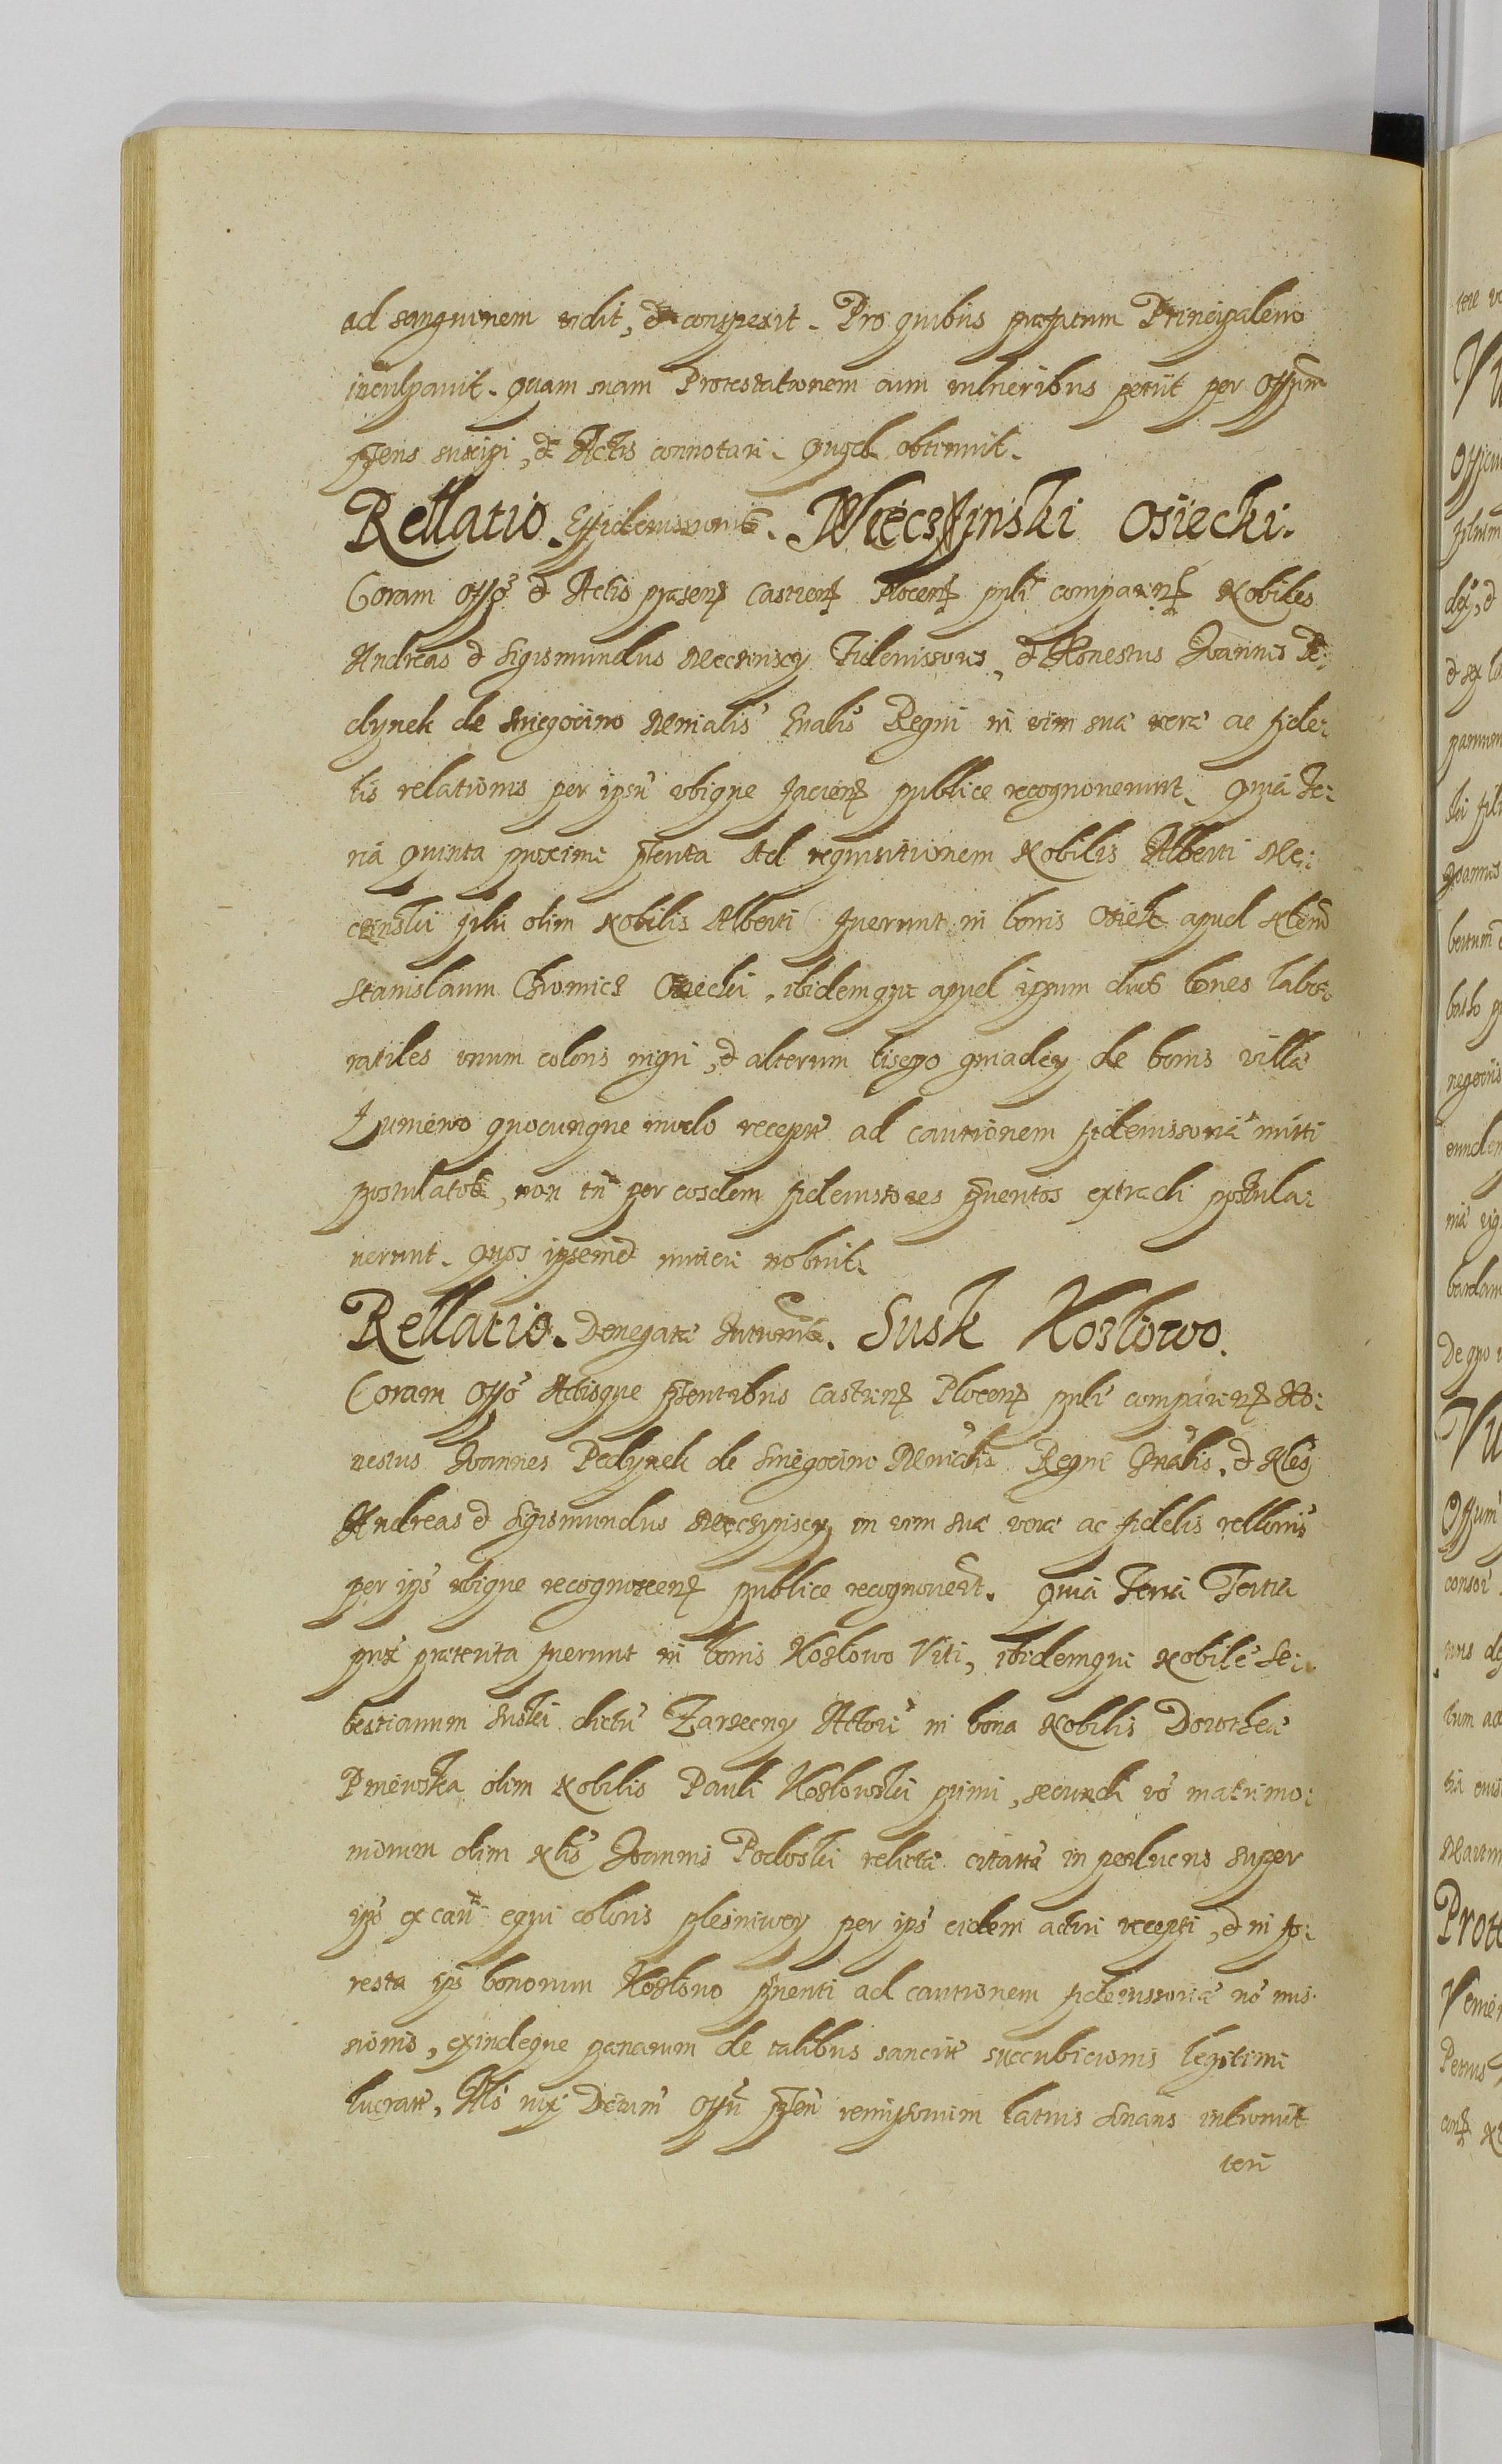 ad sanguinem vidit, et conspexit. Pro quibus prafatum Principalem
inculpavit. Quam suam Protestationem cum vulneribus petiit per Offum
pñs suscipi, et Actis connotari. Quod obtinuit.
Rellatio. Meczinski Osiecki.
Coram Offo et Actis præsen Castren Plocen psnlr comparen Nobiles
Andreas et Sigismundus Mecsinscy Fideiussores, et Honestus Joannes Pe:
dynek de Sniegocino Mnialis Gnalis Regni in vim suæ veræ ac fide:
lis relationis per ipsū ubique facien publice recognoverunt. Quia Fe:
ria quinta proxime pterita Ad requisitionem Nobilis Alberti Me:
czinski filii olim Nobilis Alberti fuerunt in bonis Osiek apud Nbem
Stanislaum Chromicz Osiecki, ibidemque apud ipsum duos boves labo:
ratiles unum coloris nigri, et alterum lisego gniadey de bonis villæ
Lumewo quocunque modo receptos ad cautionem fideiussoriā mitti
postulatos, non tñ per eosdem fideiussores pventos extradi postula:
verunt. Quos ipsemet mittere nobuit.
Rellatio. Denegatæ Intromis. Susk Kozlowo.
Coram Offo Actisque pñtibus Castren Plocen psnlr comparen Ho:
nestus Joannes Pedynek de Sniegocino Mnialis Regni Gnalis, et Nles
Andreas et Sigismundus Meczynscy in vim suæ veræ ac fidelis rellonis
per ips ubique recognoscen publice recognovert. Quia Feria Tertia
prox præterita fuerunt in bonis Kozlowo Viti, ibidemque Nobile Se:
bestianum Suski dictū Zarzeczny Actore in bona Nobilis Dorotheæ
Pniewska olim Nobilis Pauli Kozlowski primi, secundi vo matrimo:
niorum olim Nlis Joannis Podoski relictæ citatæ in perlucris super
ips ex caū equi coloris plesniwey per ips eidem actori recepti, et in fo:
resta ips bonorum Kozlowo pventi ad cautionem fideiussoriā no mis:
sionis, exindeque pænarum de talibus sancitæ succubicionis legitime
lucratæ, Als iux Decretum Offii pñ remissorium latius Gnans intromit
teri